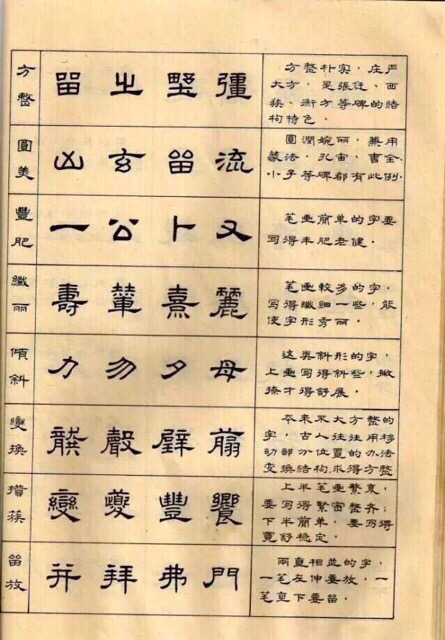 方整
留 之 彊
方整朴实，庄严
大方，是張迁、西
狭、衡方等碑的結
构特色。
圓美
山 玄 留 流
圓潤婉丽，兼用
篆法，孔宙、曹全、
小子等碑都有此例.
豐肥
一 公 卜 又
笔画簡单的字要
写得丰肥老健。
纖丽
壽 輦 熹 麗
笔画較多的字，
写得纖細一些，能
使字形秀丽。
傾斜
力 勿 夕 母
这类斜形的字，
上画写得斜些，撇
捺才得舒展。
變换
龔 璧 翦
本来不大方整的
字，古人往往用移
动部分位置的办法
变换結构求得方整
攢蔟
變 夔 豐 饗
上半笔画繁复，
要写得繁密整齐；
下半簡单，要写得
寬舒穩定。
留放
并 拜 弗 門
兩直相並的字，
一笔左伸要放，一
笔直下要留。